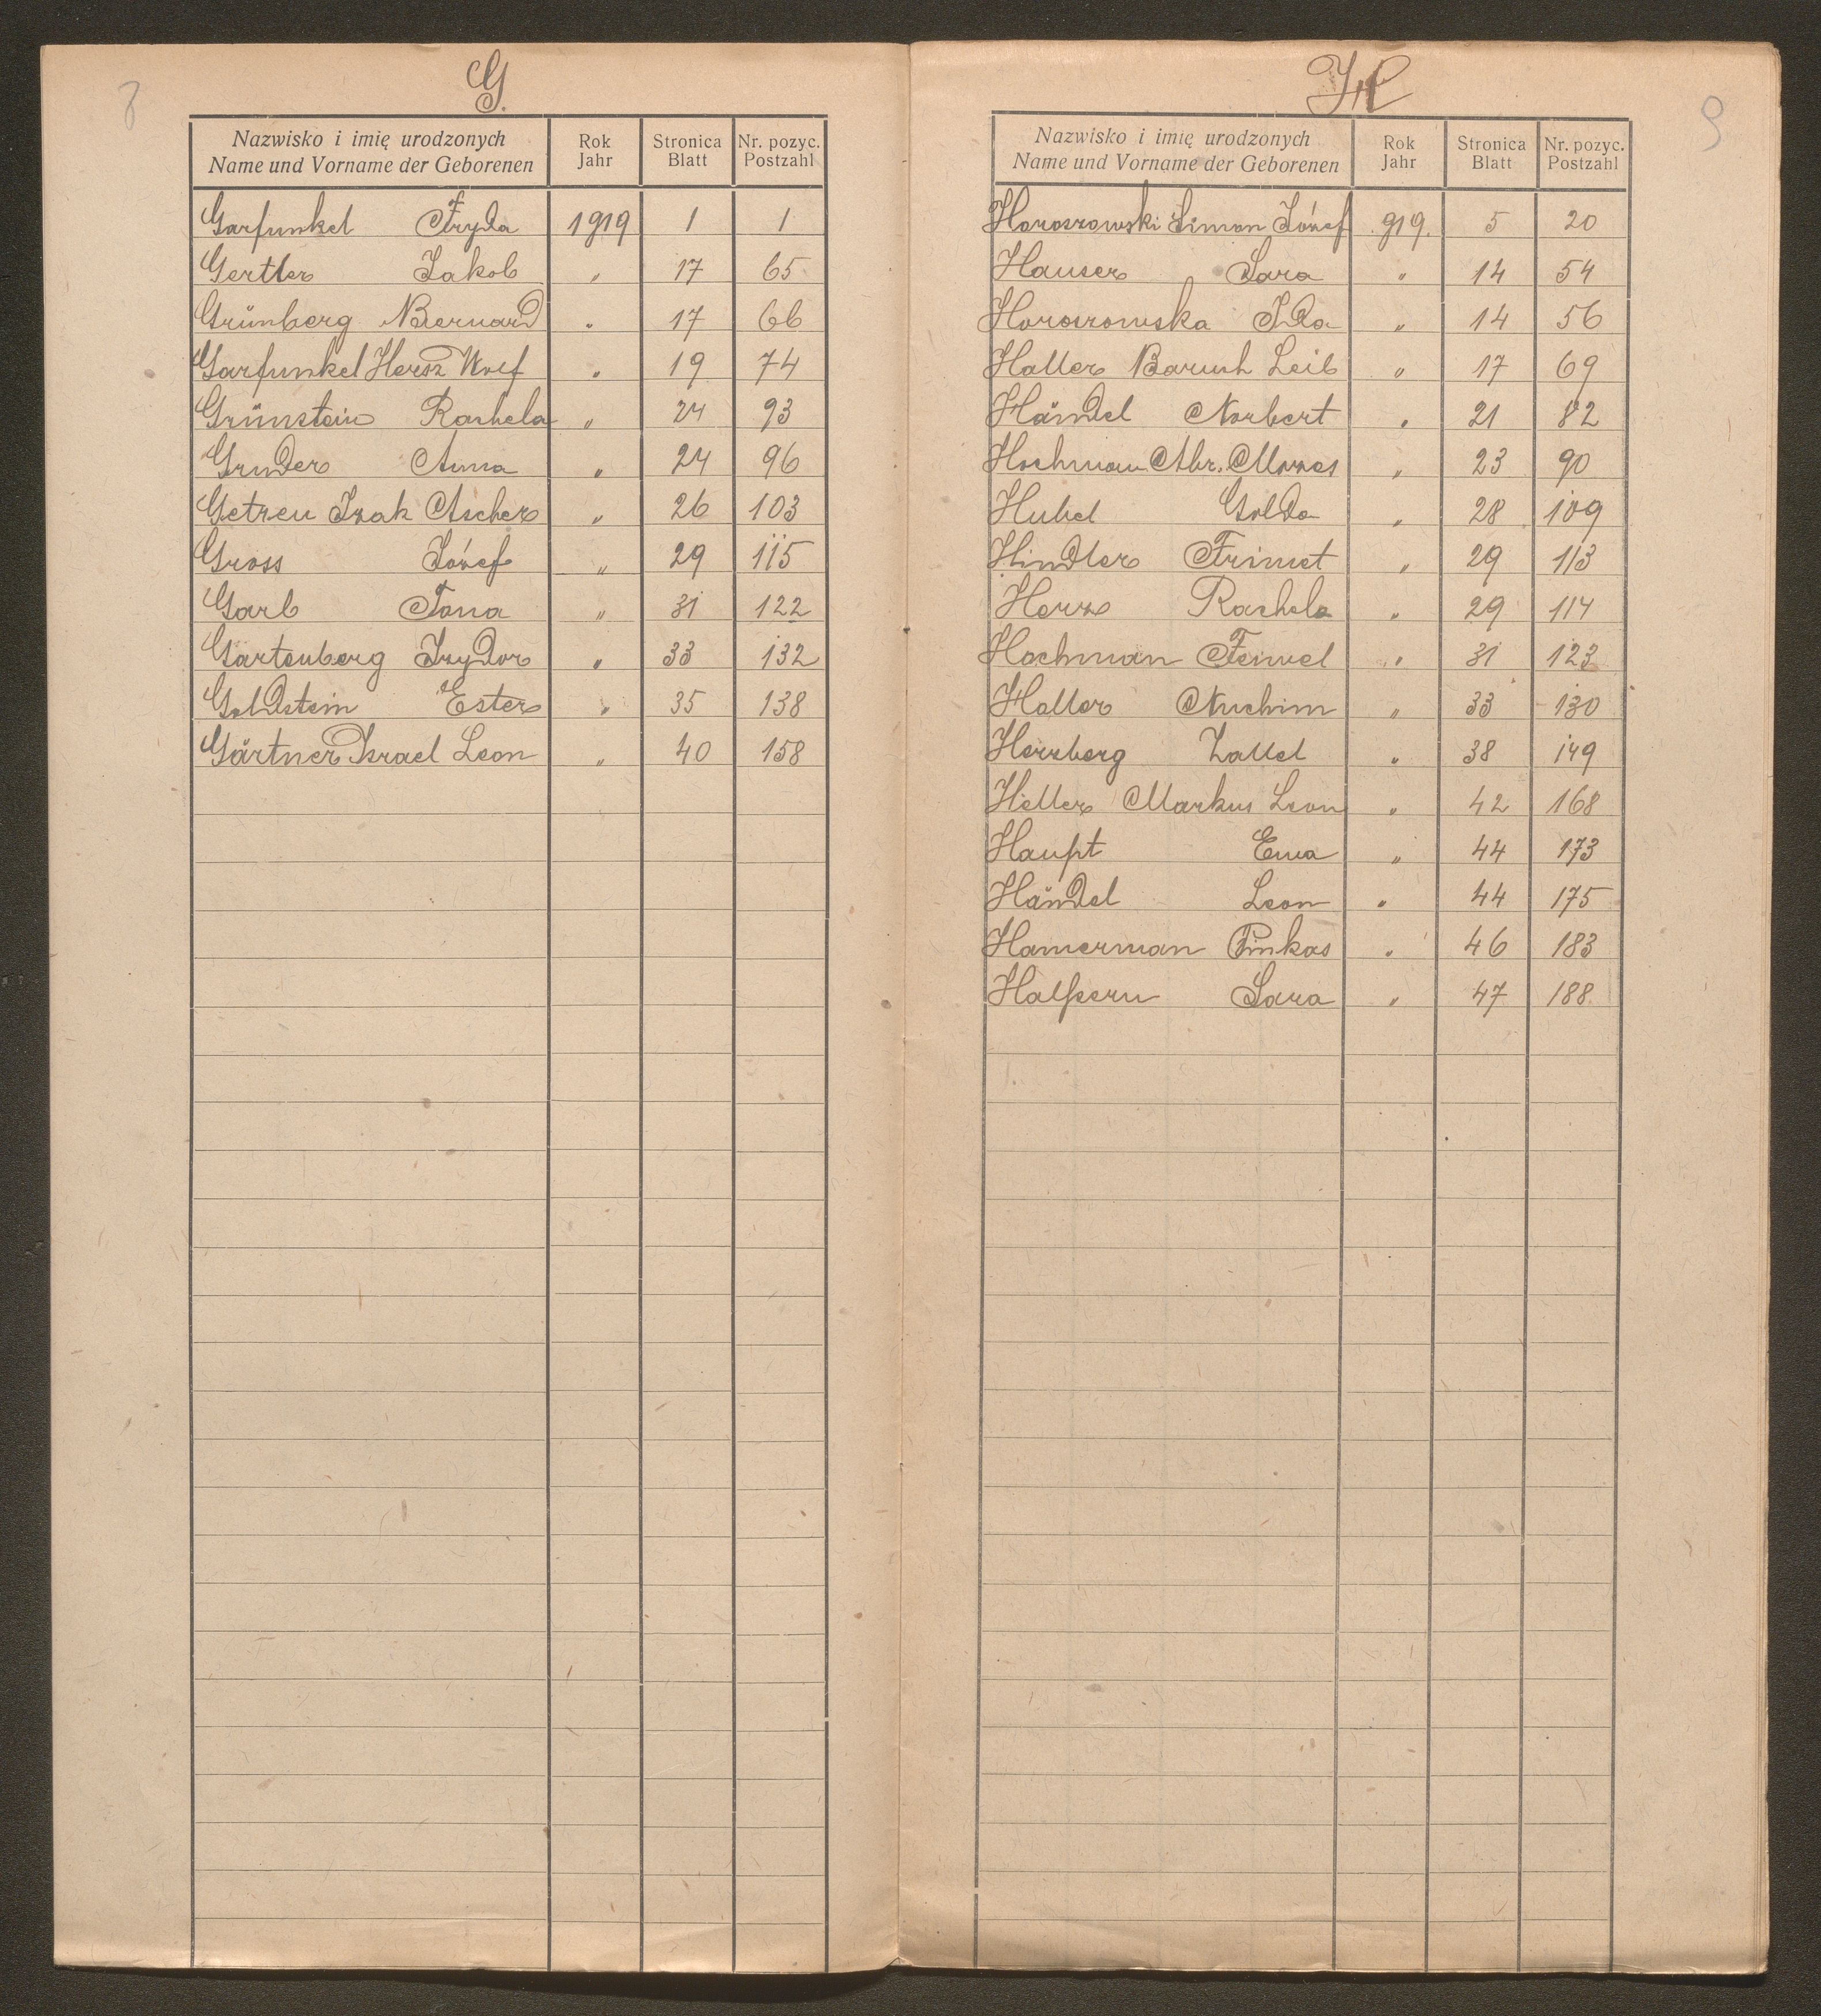 8
G.
Nazwisko i imię urodzonych Rok Stronica Nr. pozyc.
Name und Vorname der Geborenen Jahr Blatt Postzahl
Garfunkel Fryda 1919 1 1
Gertler Jakob " 17 65
Grünberg Bernard " 17 66
Garfunkel Hersz Wolf " 19 74
Grünstein Rachela " 24 93
Gruder Anna " 24 96
Getreu Izak Ascher " 26 103
Gross Józef " 29 115
Garb Tona " 31 122
Gartenberg Izydor " 33 132
Goldstein Ester " 35 138
Gärtner Israel Leon " 40 158
9
H
Nazwisko i imię urodzonych Rok Stronica Nr. pozyc.
Name und Vorname der Geborenen Jahr Blatt Postzahl
Horoszowski Simon Józef 919. 5 20
Hauser Sara " 14 54
Horoszowska Ida " 14 56
Haller Baruch Leib " 17 69
Händel Norbert " 21 82
Hochman Abr. Mozes " 23 90
Hubel Golda " 28 109
Hindler Frimet " 29 113
Herz Rachela " 29 114
Hochman Feiwel " 31 123
Haller Nuchim " 33 130
Herzberg Zallel " 38 149
Heller Markus Leon " 42 168
Haupt Ewa " 44 173
Händel Leon " 44 175
Hamerman Pinkas " 46 183
Halpern Sara " 47 188